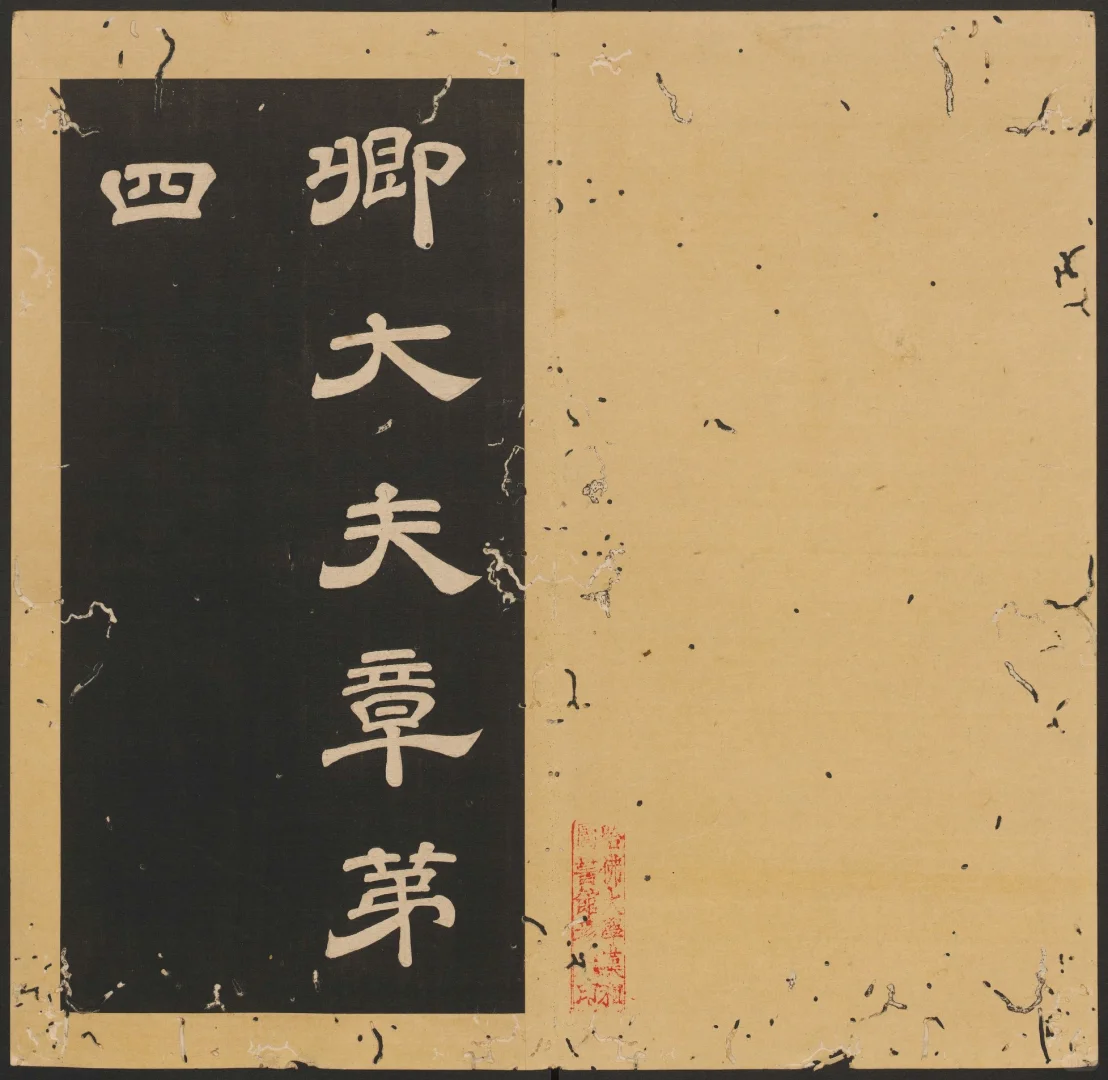 卿大夫章第
四
哈佛大學漢和
圖書館珍藏印